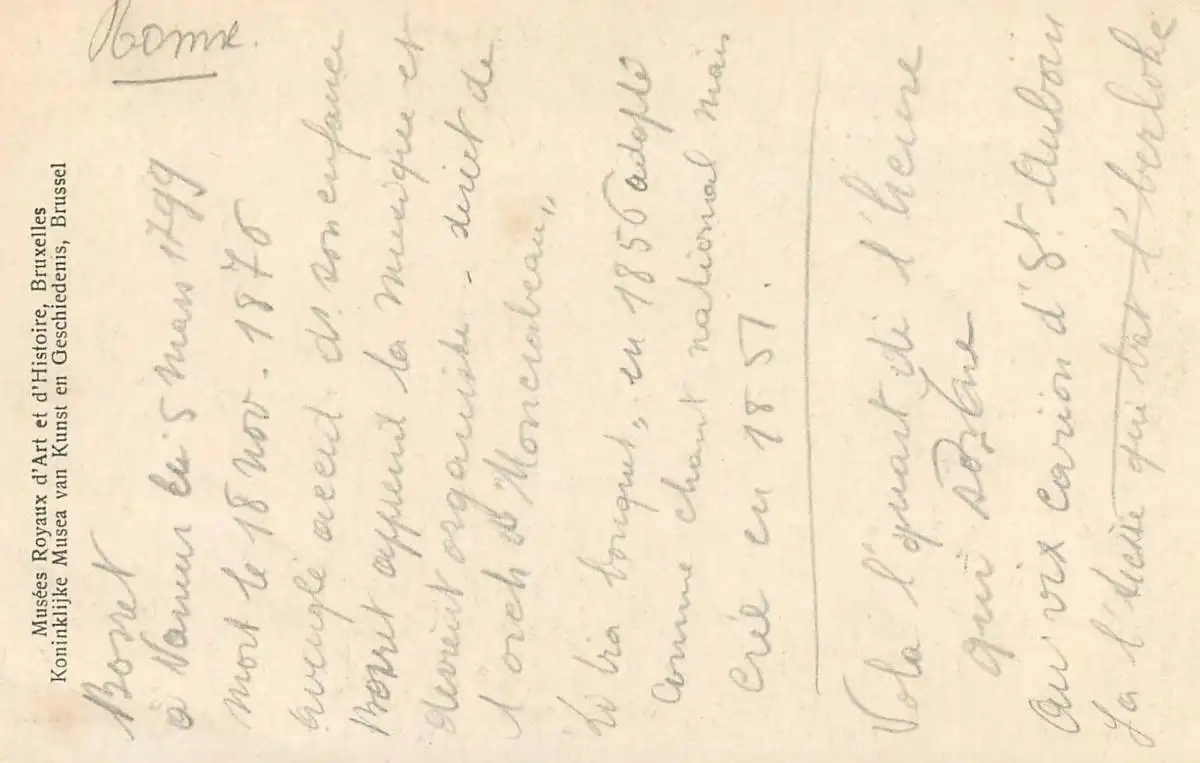 Musées Royaux d'Art et d'Histoire, Bruxelles
Koninklijke Musea van Kunst en Geschiedenis, Brussel
Rome.
Bosret
à Namur le 5 mars 1799
mort le 18 nov. 1876
aveugle accid. ds son enfance
Bosret apprend la musique et
devient organiste - direct de
l'orch d Moncrabeau"
"Li bia bouquet" en 1856 adopté
comme chant national mais
créé en 1851.
Vola l'quart di l'heure
qui sone
au vix carion d'St Auboin
Ja l' qui bat l'berloke